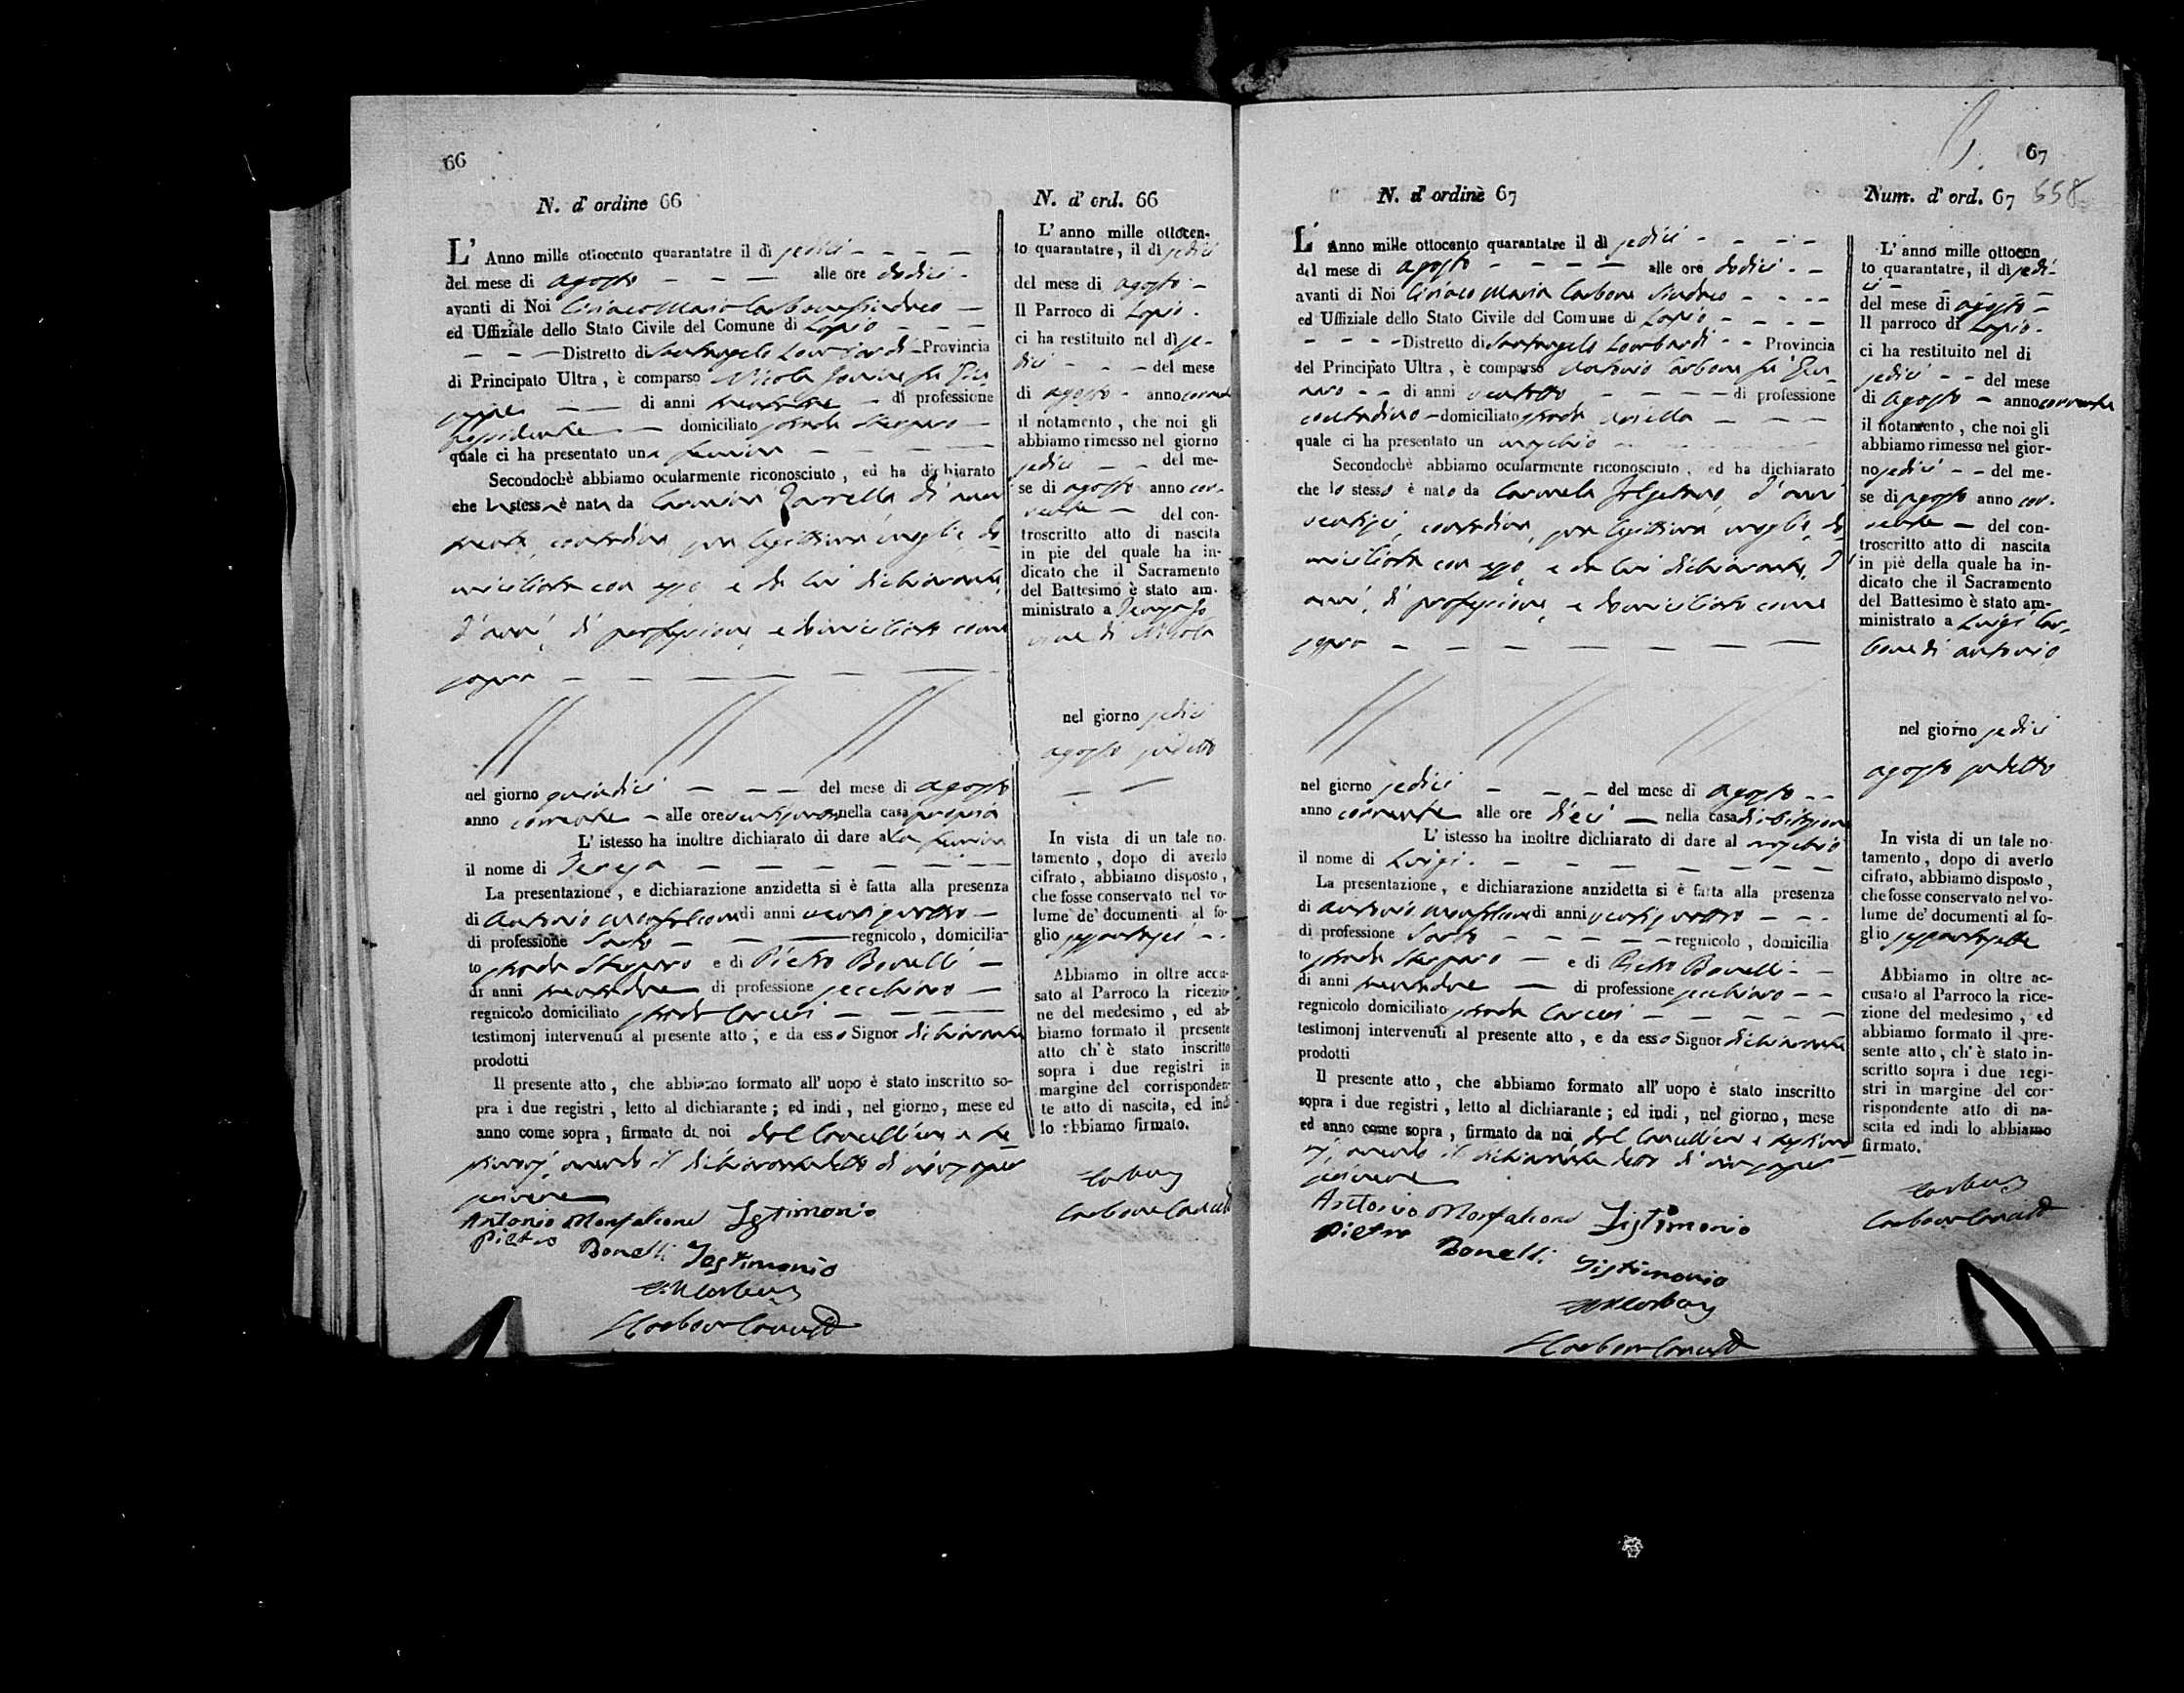 66
N. d' ordine 66
L' Anno mille ottocento quarantatre il dì sedici
del mese di agosto alle ore dodici
avanti di Noi Ciriaco Maria Carbone Sindaco
ed Uffiziale dello Stato Civile del Comune di Lapio
Distretto di Santangelo Lombardi Provincia
di Principato Ultra, è comparso Nicola
di anni di professione
domiciliato strada
quale ci ha presentato una femina
Secondochè abbiamo ocularmente riconosciuto, ed ha dichiarato
che la stessa è nata da Carmina di anni
trenta, contadina, sua legittima moglie, do-
miciliata con esso, e da lui dichiarante,
d'anni, di professione, e domiciliato come
sopra
nel giorno quindici del mese di agosto
anno corrente alle ore nella casa propria
L' istesso ha inoltre dichiarato di dare alla femina
il nome di Teresa
La presentazione, e dichiarazione anzidetta si è fatta alla presenza
di Antonio Monfalcone di anni ventiquattro
di professione Sarto regnicolo, domicilia-
to strada e di Pietro Bonelli
di anni di professione
regnicolo domiciliato strada Carceri
testimonj intervenuti al presente atto, e da esso Signor dichiarante
prodotti
Il presente atto, che abbiamo formato all' uopo è stato inscritto so-
pra i due registri, letto al dichiarante; ed indi, nel giorno, mese ed
anno come sopra, firmato da noi, dal Cancelliere e te-
stimonj, avendo il dichiarante detto di non saper
scrivere
Antonio Monfalcone Testimonio
Pietro Bonelli Testimonio
N. d' ord. 66
L' anno mille ottocen-
to quarantatre, il dì sedici
del mese di agosto
Il Parroco di Lapio
ci ha restituito nel dì se-
dici del mese
di agosto anno corrente
il notamento, che noi gli
abbiamo rimesso nel giorno
sedici del me-
se di agosto anno cor-
rente del con-
troscritto atto di nascita
in pie del quale ha in-
dicato che il Sacramento
del Battesimo è stato am-
ministrato a Teresa
di Nicola
nel giorno sedici
agosto sudetto
In vista di un tale no-
tamento, dopo di averlo
cifrato, abbiamo disposto,
che fosse conservato nel vo-
lume de' documenti al fo-
glio sessantasei
Abbiamo in oltre accu-
sato al Parroco la ricezio-
ne del medesimo, ed ab-
biamo formato il presente
atto ch' è stato inscritto
sopra i due registri in
margine del corrisponden-
te atto di nascita, ed indi
lo abbiamo firmato.
67
N. d' ordine 67
L' Anno mille ottocento quarantatre il dì sedici
del mese di agosto alle ore dodici
avanti di Noi Ciriaco Maria Carbone Sindaco
ed Uffiziale dello Stato Civile del Comune di Lapio
Distretto di Santangelo Lombardi Provincia
del Principato Ultra, è comparso Antonio Carbone fu
di anni ventotto di professione
contadino domiciliato strada
quale ci ha presentato un maschio
Secondochè abbiamo ocularmente riconosciuto, ed ha dichiarato
che lo stesso è nato da Carmela d'anni
ventisei, contadina, sua legittima moglie, do-
miciliata con esso, e da lui dichiarante, d'
anni, di professione, e domiciliato come
sopra
nel giorno sedici del mese di agosto
anno corrente alle ore dieci nella casa di abitazione
L' istesso ha inoltre dichiarato di dare al maschio
il nome di Luigi
La presentazione, e dichiarazione anzidetta si è fatta alla presenza
di Antonio Monfalcone di anni ventiquattro
di professione Sarto regnicolo, domicilia
to strada e di Pietro Bonelli
di anni di professione
regnicolo domiciliato strada Carceri
testimonj intervenuti al presente atto, e da esso Signor dichiarante
prodotti
Il presente atto, che abbiamo formato all' uopo è stato inscritto
sopra i due registri, letto al dichiarante; ed indi, nel giorno, mese
ed anno come sopra, firmato da noi, dal Cancelliere e testimo-
nj, avendo il dichiarante detto di non saper
scrivere
Antonio Monfalcone Testimonio
Pietro Bonelli Testimonio
Num. d' ord. 67
L' anno mille ottocen
to quarantatre, il dì sedi-
ci
del mese di agosto
Il parroco di Lapio
ci ha restituito nel di
sedici del mese
di agosto anno corrente
il notamento, che noi gli
abbiamo rimesso nel gior-
no sedici del me-
se di agosto anno cor-
rente del con-
troscritto atto di nascita
in piè della quale ha in-
dicato che il Sacramento
del Battesimo è stato am-
ministrato a Luigi Car-
bone di Antonio
nel giorno sedici
agosto sudetto
In vista di un tale no-
tamento, dopo di averlo
cifrato, abbiamo disposto,
che fosse conservato nel vo-
lume de' documenti al fo-
glio sessantasette
Abbiamo in oltre ac-
cusato al Parroco la rice-
zione del medesimo, ed
abbiamo formato il pre-
sente atto, ch' è stato in-
scritto sopra i due regi-
stri in margine del cor-
rispondente atto di na-
scita ed indi lo abbiamo
firmato.